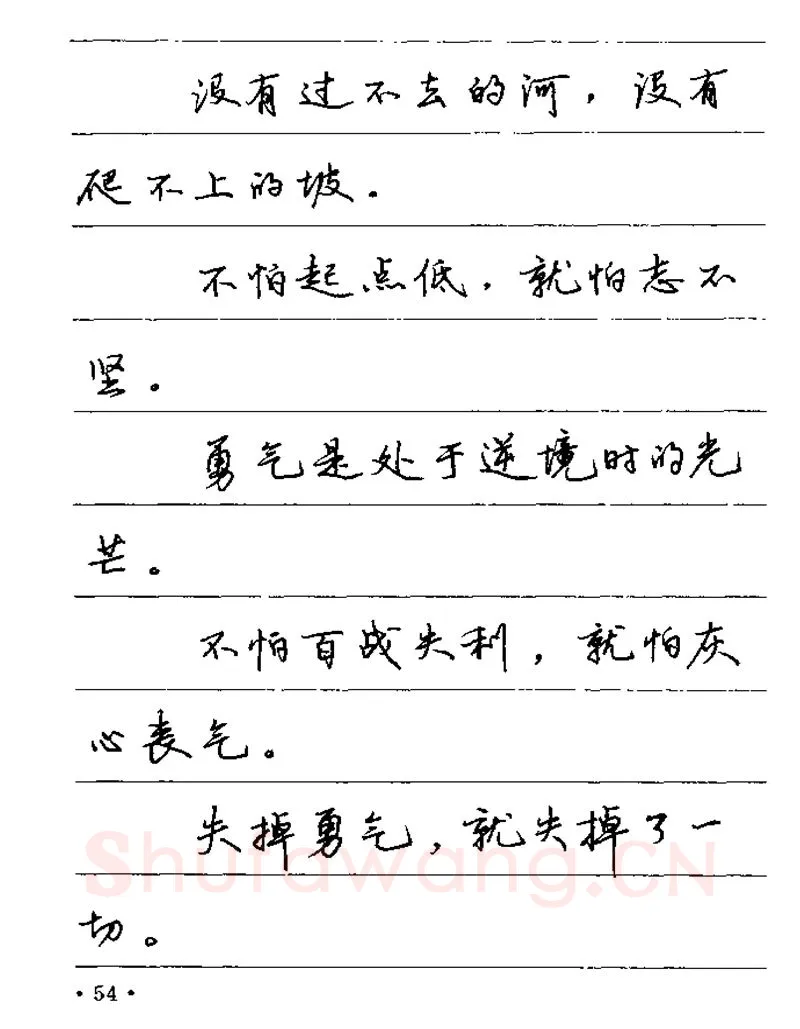 没有过不去的河，没有
爬不上的坡。
不怕起点低，就怕志不
坚。
勇气是处于逆境时的光
芒。
不怕百战失利，就怕灰
心丧气。
失掉勇气，就失掉了一
切。
Shufawang.CN
·54·